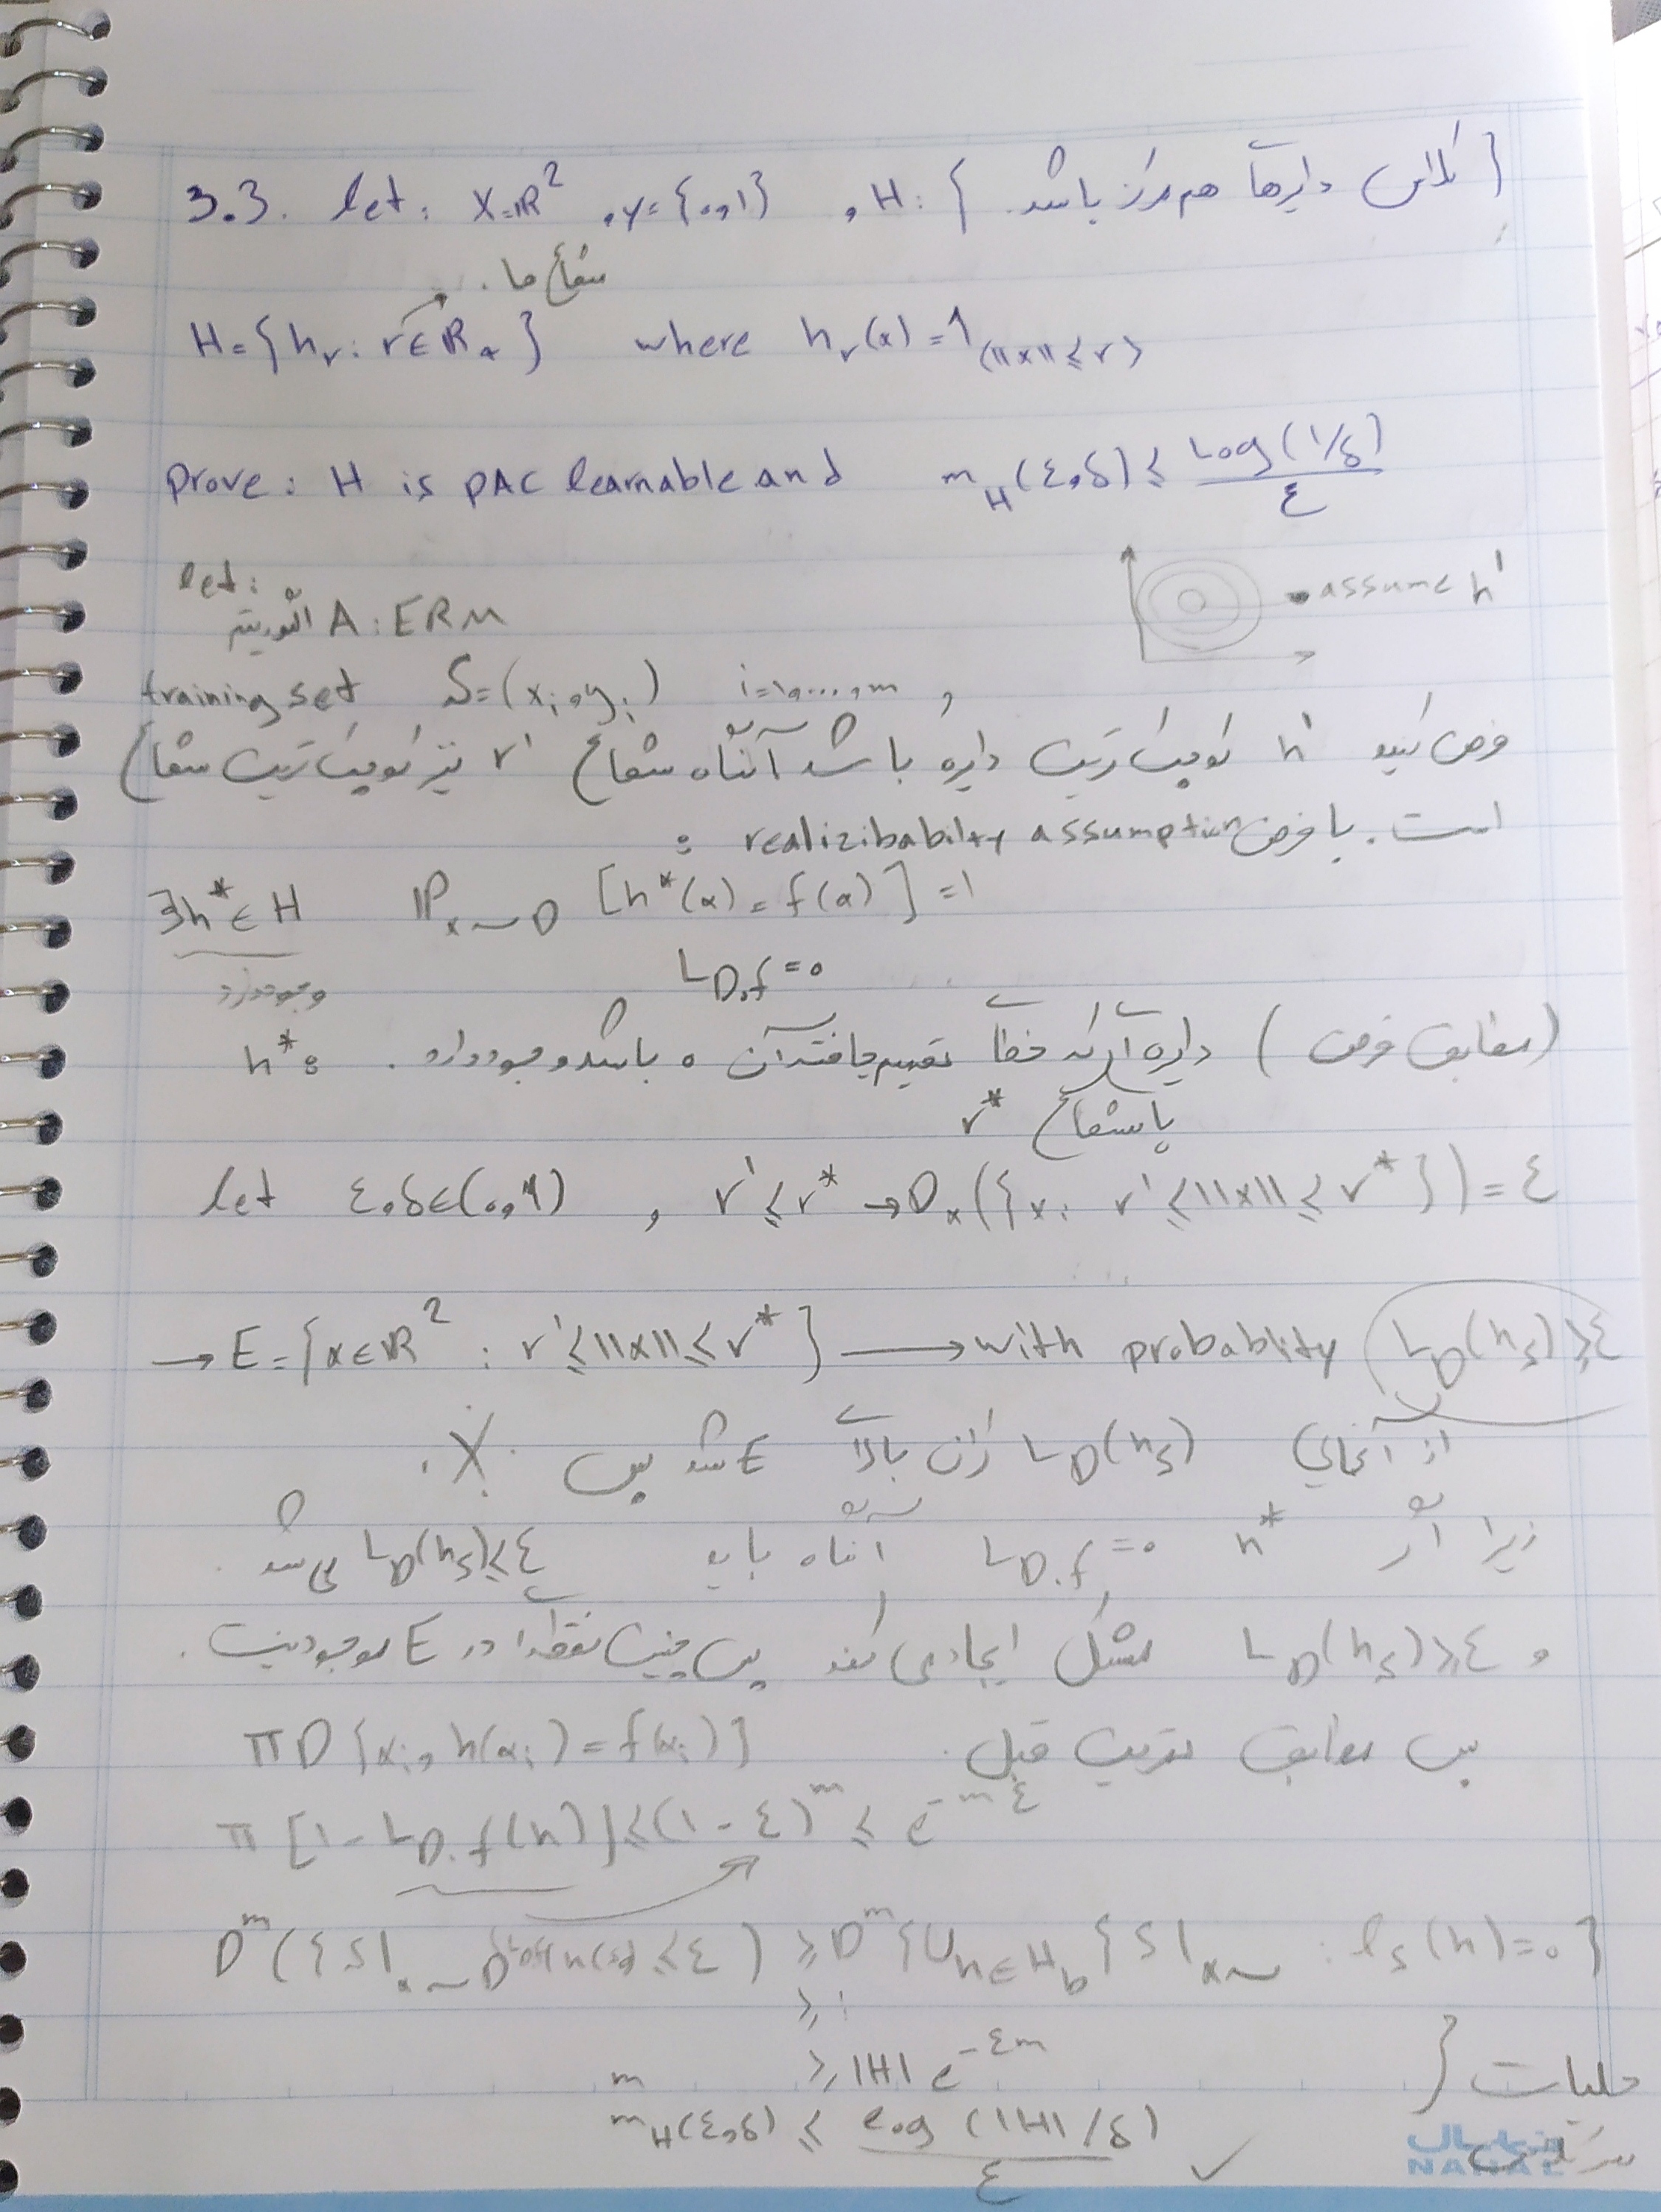 3.3. let: X=ℝ² , y={0,1} , H: { کلاس دایره‌های هم مرکز باشد. }
شعاع ها.
H={hᵣ: r∈ℝ₊} where hᵣ(x)=1₍‖x‖≤r₎
prove: H is PAC learnable and m_H(ε,δ) ≤ Log(1/δ)/ε
let: assume h'
الگوریتم A: ERM
training set S=(xᵢ,yᵢ) i=1,...,m ,
فرض کنید h' کوچک ترین دایره باشد آنگاه شعاع r' نیز کوچک ترین شعاع
است. با فرض realizibability assumption :
∃h*∈H ℙ_x~D [h*(x)=f(x)]=1
وجود دارد L_D,f=0
(مطابق فرض) دایره ای که خطای تعمیم یافته آن 0 باشد وجود دارد. h*:
با شعاع r*
let ε,δ∈(0,1) , r'≤r* → D_x({x: r'≤‖x‖≤r*})=ε
→ E={x∈ℝ² : r'≤‖x‖≤r*} → with probablity L_D(h_s)≥ε
از آنجایی L_D(h_s) پس
زیرا اگر h* L_D,f=0 آنگاه باید L_D(h_s)≤ε می شد.
و L_D(h_s)≥ε مشکل ایجاد می کند پس چنین نقطه ای در E موجود نیست.
پس مطابق تمرین قبل. π D{xᵢ, h(xᵢ)=f(xᵢ)}
π [1-L_D,f(h)]≤(1-ε)^m ≤ e^-mε
D^m({S|ₓ ≤ε) ≥ D^m{∪_h∈H_b {S|ₓ : l_s(h)=0}
≥ :
≥ |H| e^-εm
m_H(ε,δ) ≤ log(|H|/δ)/ε ✓
NAHAL